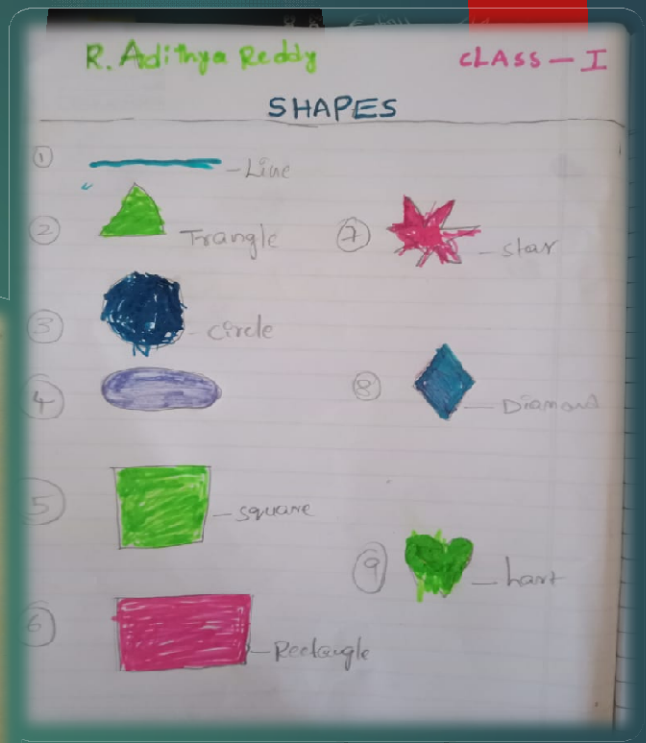 R. Adithya Reddy
CLASS - I
SHAPES
1 - Line
2 Trangle
3 - circle
4
5 - square
6 - Rectangle
7 - star
8 - Diamond
9 - hart